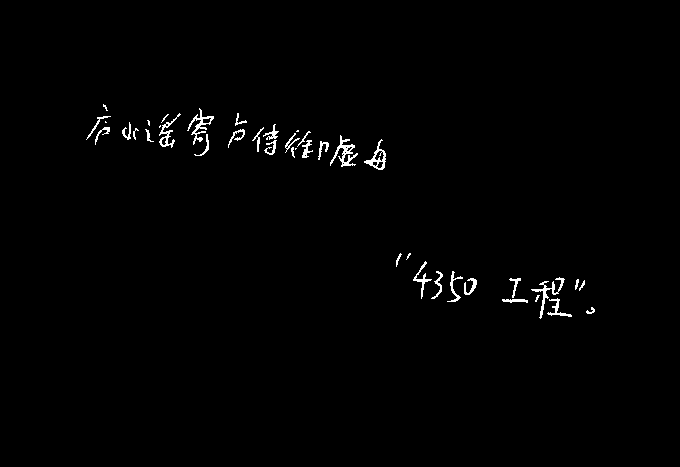 庐山谣寄卢侍御虚舟
"4350 工程"。